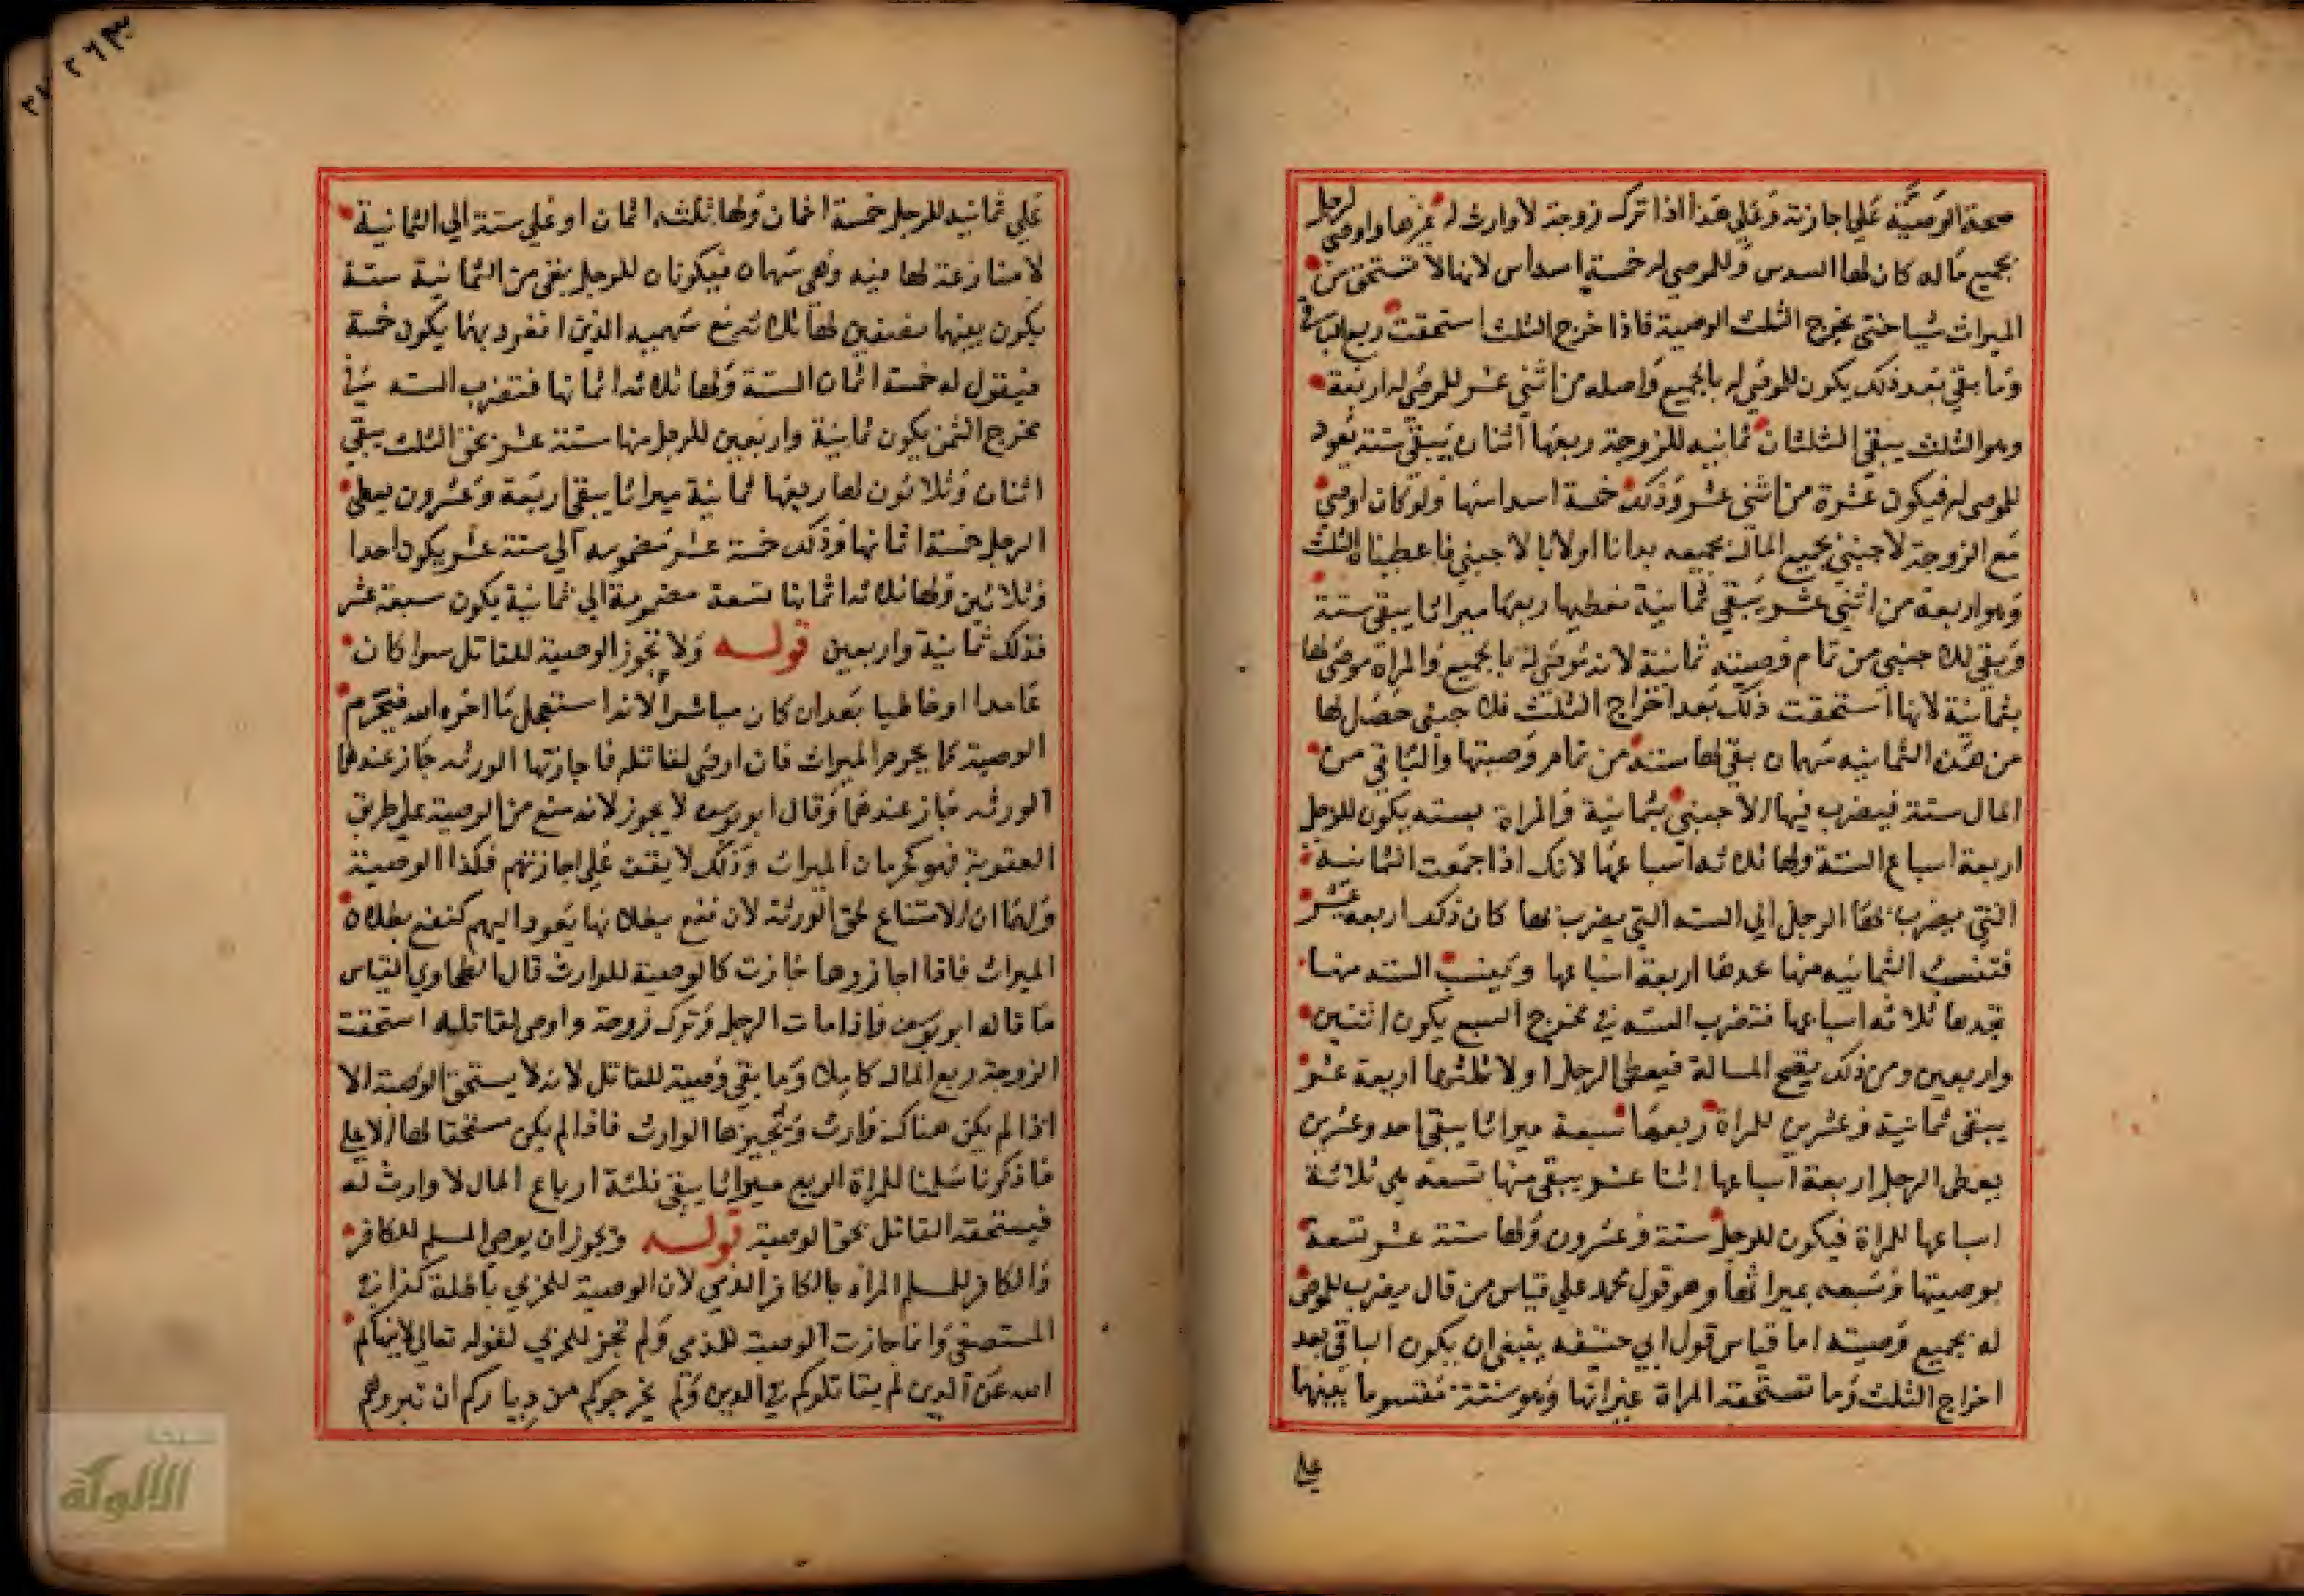 صحة الوصية علي اجازته وعلي هذا اذا ترك زوجة لا وارث له غيرها واوصي لرجل
بجميع ماله كان لها السدس وللموصي له خمسة اسداس لانها لا تستحق من
الميراث شيا حتي يخرج الثلث الوصية فاذا خرج الثلث استحقت ربع الباقي
وما بقي بعد ذلك يكون للموصي له بالجميع واصله من اثني عشر للموصي له اربعة
وهو الثلث يبقي الثلثان ثمانيه للزوجة ربعها اثنان يبقي ستة يعود
للموصي له فيكون عشرة من اثني عشر وذلك خمسة اسداسها ولو كان اوصي
مع الزوجة لاجنبي بجميع المال بجميعه بدانا اولا بالاجنبي فاعطيناه الثلث
وهو اربعة من اثني عشر يبقي ثمانية نعطيها ربعها ميراثا يبقي ستة
وبقي للاجنبي من تمام وصيته ثمانية لانه موصي له بالجميع والمراة موصي لها
بثمانية لانها استحقت ذلك بعد اخراج الثلث فلاجنبي حصل لها
من هذه الثمانيه سهمان بقي لها ستة من تمام وصيتها والباقي من
المال ستة فيضرب فيها الاجنبي بثمانية والمراة بسته يكون للرجل
اربعة اسباع الستة ولها ثلاثه اسباعها لانك اذا جمعت الثمانية
التي يضرب بها الرجل الي السته التي يضرب بها كان ذلك اربعه عشر
فتنسب الثمانيه منها عدها اربعة اسباعها وينسب الستة منها
تجدها ثلاثه اسباعها فتضرب السته في مخرج السبع يكون اثنين
واربعين ومن ذلك يصح المسالة فيعطي الرجل اولا ثلثها اربعة عشر
يبقي ثمانية وعشرين للمراة ربعها سبعة ميراثا يبقي احد وعشرين
يعطي الرجل اربعة اسباعها اثنا عشر يبقي منها تسعه هي ثلاثة
اسباعها للمراة فيكون للرجل ستة وعشرون ولها ستة عشر تسعة
بوصيتها وسبعه بميراثها وهو قول محمد علي قياس من قال يضرب للموصي
له بجميع وصيته اما قياس قول ابي حنيفه ينبغي ان يكون الباقي بعد
اخراج الثلث وما تستحقه المراة غيراثها وهو ستة مقسوما بينهما
علي
علي ثمانيه للرجل خمسة اثمان ولها ثلثه اثمان او علي ستة الي الثمانية
لا منازعة لها فيه وهي سهمان فيكونان للرجل يبقي من الثمانية ستة
يكون بينهما نصفين لها ثلاثه مع سهميه الذين انفرد بهما يكون خمسة
فيقول له خمسة اثمان الستة ولها ثلاثه اثمانها فتضرب الستة في
مخرج الثمن يكون ثمانية واربعين للرجل منها ستة عشر بحق الثلث يبقي
اثنان وثلاثون لها ربعها ثمانية ميراثا يبقي اربعة وعشرون يعطي
الرجل خمسة اثمانها وذلك خمسة عشر مضمومه الي ستة عشر يكون احدا
وثلاثين ولها ثلاثه اثمانها تسعة مضمومة الي ثمانية يكون سبعة عشر
فذلك ثمانية واربعين قوله ولا تجوز الوصية للقاتل سوا كان
عامدا او خاطيا بعد ان كان مباشرا لانه استعجل ما اخره الله فيحرم
الوصية كما يحرم الميراث فان اوصي لقاتله فاجازتها الورثه جاز عندهما
الورثه جاز عندهما وقال ابو يوسف لا يجوز لانه منع من الوصية علي طريق
العقوبة فهو كحرمان الميراث وذلك لا يقف علي اجازتهم فكذا الوصية
ولهما ان الامتناع لحق الورثة لان نفع بطلانها يعود اليهم كنفع بطلان
الميراث فاذا اجازوها جازت كالوصية للوارث قال الطحاوي القياس
ما قاله ابو يوسف فاذا مات الرجل وترك زوجة واوصي لقاتليه استحقت
الزوجة ربع المال كاملا وما بقي وصية للقاتل لانه لا يستحق الوصية الا
اذا لم يكن هناك وارث ويجيزها الوارث فاذا لم يكن مستحقا لها الا علي
ما ذكرنا سلمنا للمراة الربع ميراثا يبقي ثلثة ارباع المال لا وارث له
فيستحقه القاتل بحق الوصية قوله ويجوز ان يوصي المسلم للكافر
والكافر للمسلم المراد بالكافر الذمي لان الوصية للحربي باطلة كذا في
المستصفي وانما جازت الوصية للذمي ولم تجز للحربي لقوله تعالي لا ينهاكم
الله عن الذين لم يقاتلوكم في الدين ولم يخرجوكم من دياركم ان تبروهم
٢٦٣
الألوكة